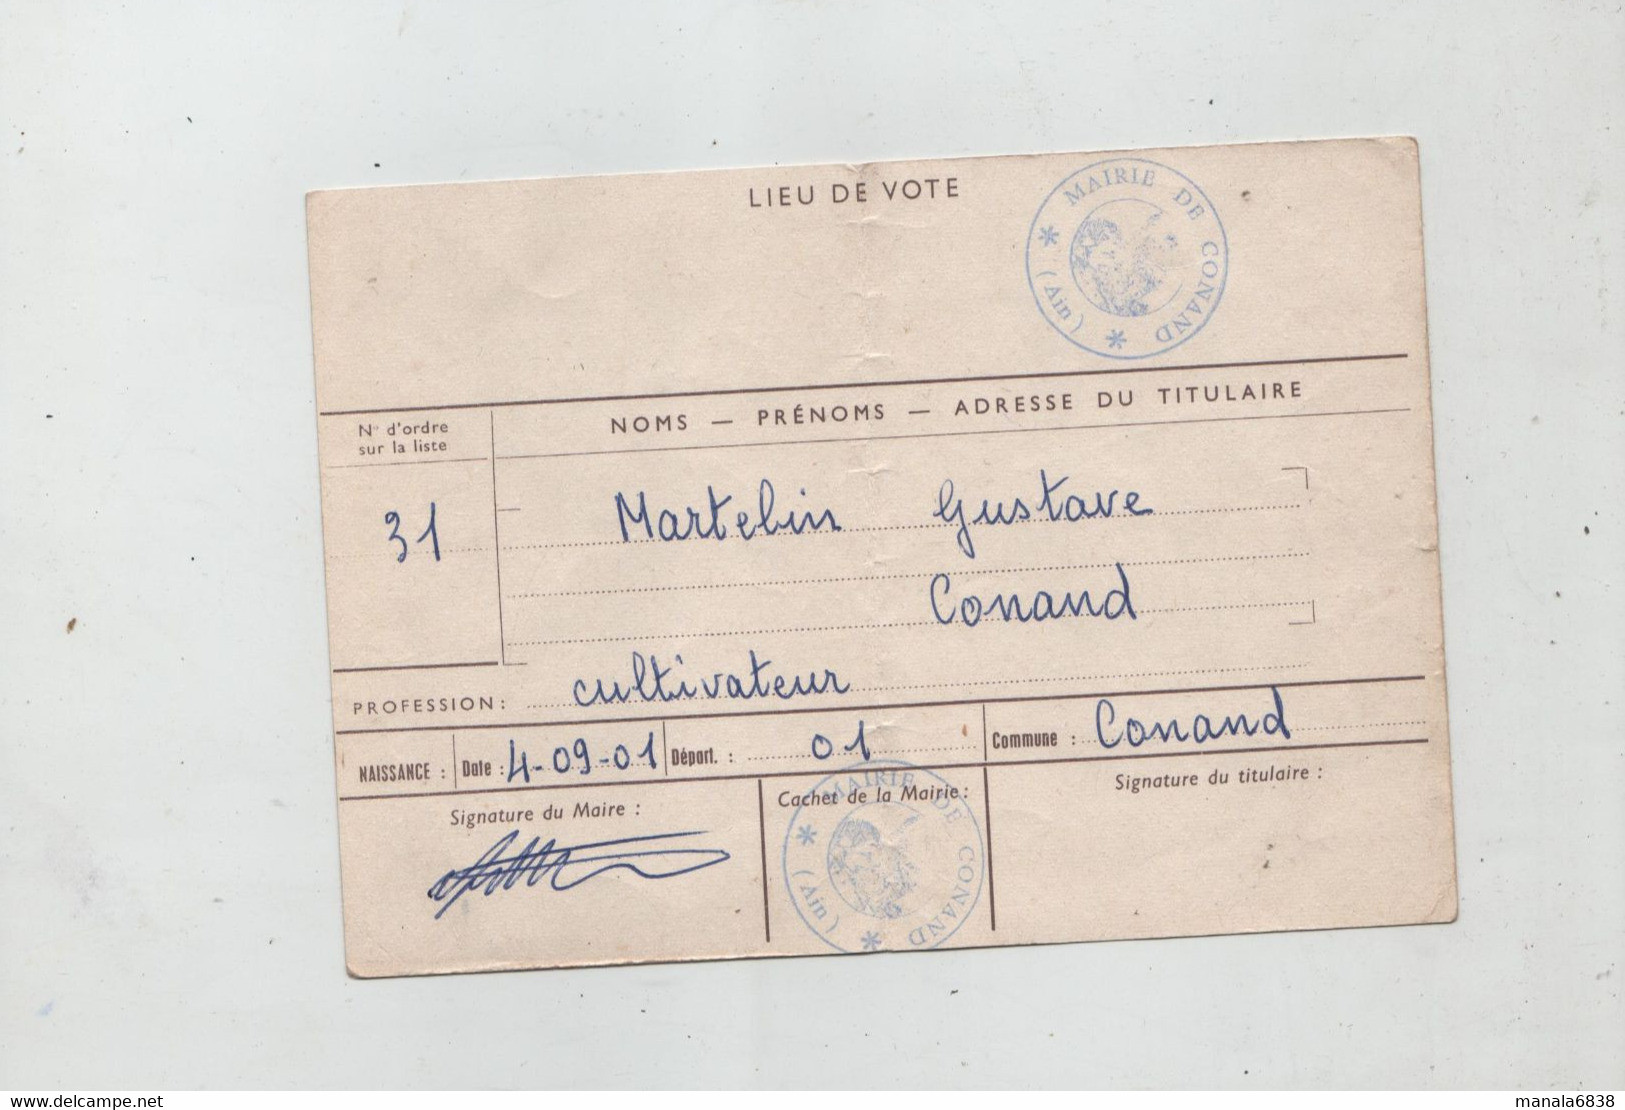 LIEU DE VOTE
* MAIRIE DE CONAND * (Ain)
N° d'ordre
sur la liste
NOMS — PRÉNOMS — ADRESSE DU TITULAIRE
31
Martelin Gustave
Conand
PROFESSION : cultivateur
NAISSANCE : Date : 4-09-01 Départ. : 01 Commune : Conand
Signature du Maire :
Cachet de la Mairie :
Signature du titulaire :
* MAIRIE DE CONAND * (Ain)
www.delcampe.net
manala6838